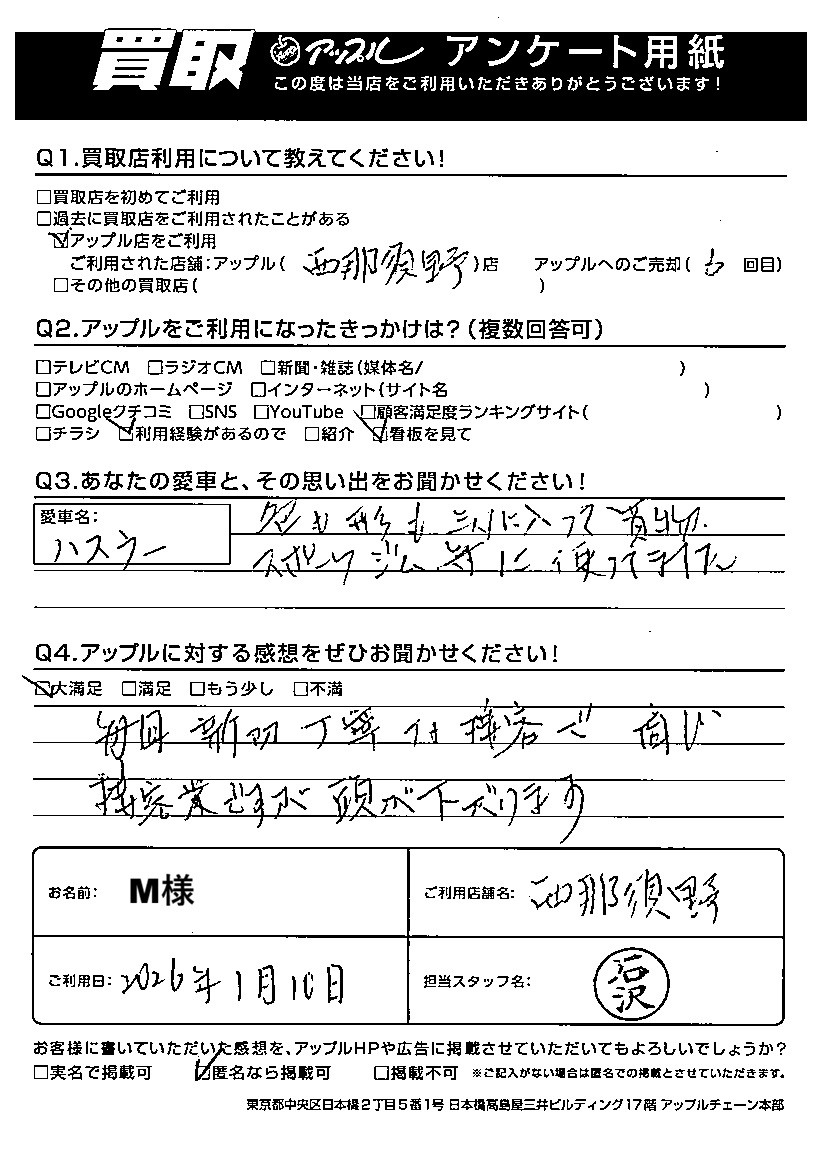 買取 アップル アンケート用紙
この度は当店をご利用いただきありがとうございます!
Q1.買取店利用について教えてください!
□買取店を初めてご利用
□過去に買取店をご利用されたことがある
☑アップル店をご利用
ご利用された店舗:アップル( 西那須野 )店 アップルへのご売却( 6 回目)
□その他の買取店( )
Q2.アップルをご利用になったきっかけは?(複数回答可)
□テレビCM □ラジオCM □新聞・雑誌(媒体名/ )
□アップルのホームページ □インターネット(サイト名 )
□Googleクチコミ □SNS □YouTube □顧客満足度ランキングサイト( )
□チラシ ☑利用経験があるので □紹介 ☑看板を見て
Q3.あなたの愛車と、その思い出をお聞かせください!
愛車名:
ハスラー
色も形も気に入って買物、
スポーツジム等に使ってました
Q4.アップルに対する感想をぜひお聞かせください!
☑大満足 □満足 □もう少し □不満
毎回親切丁寧な接客で 同じ
接客業ですが頭が下がります
お名前: M様 ご利用店舗名: 西那須野
ご利用日: 2026年1月10日 担当スタッフ名: 石沢
お客様に書いていただいた感想を、アップルHPや広告に掲載させていただいてもよろしいでしょうか?
□実名で掲載可 ☑匿名なら掲載可 □掲載不可 ※ご記入がない場合は匿名での掲載とさせていただきます。
東京都中央区日本橋2丁目5番1号 日本橋髙島屋三井ビルディング17階 アップルチェーン本部